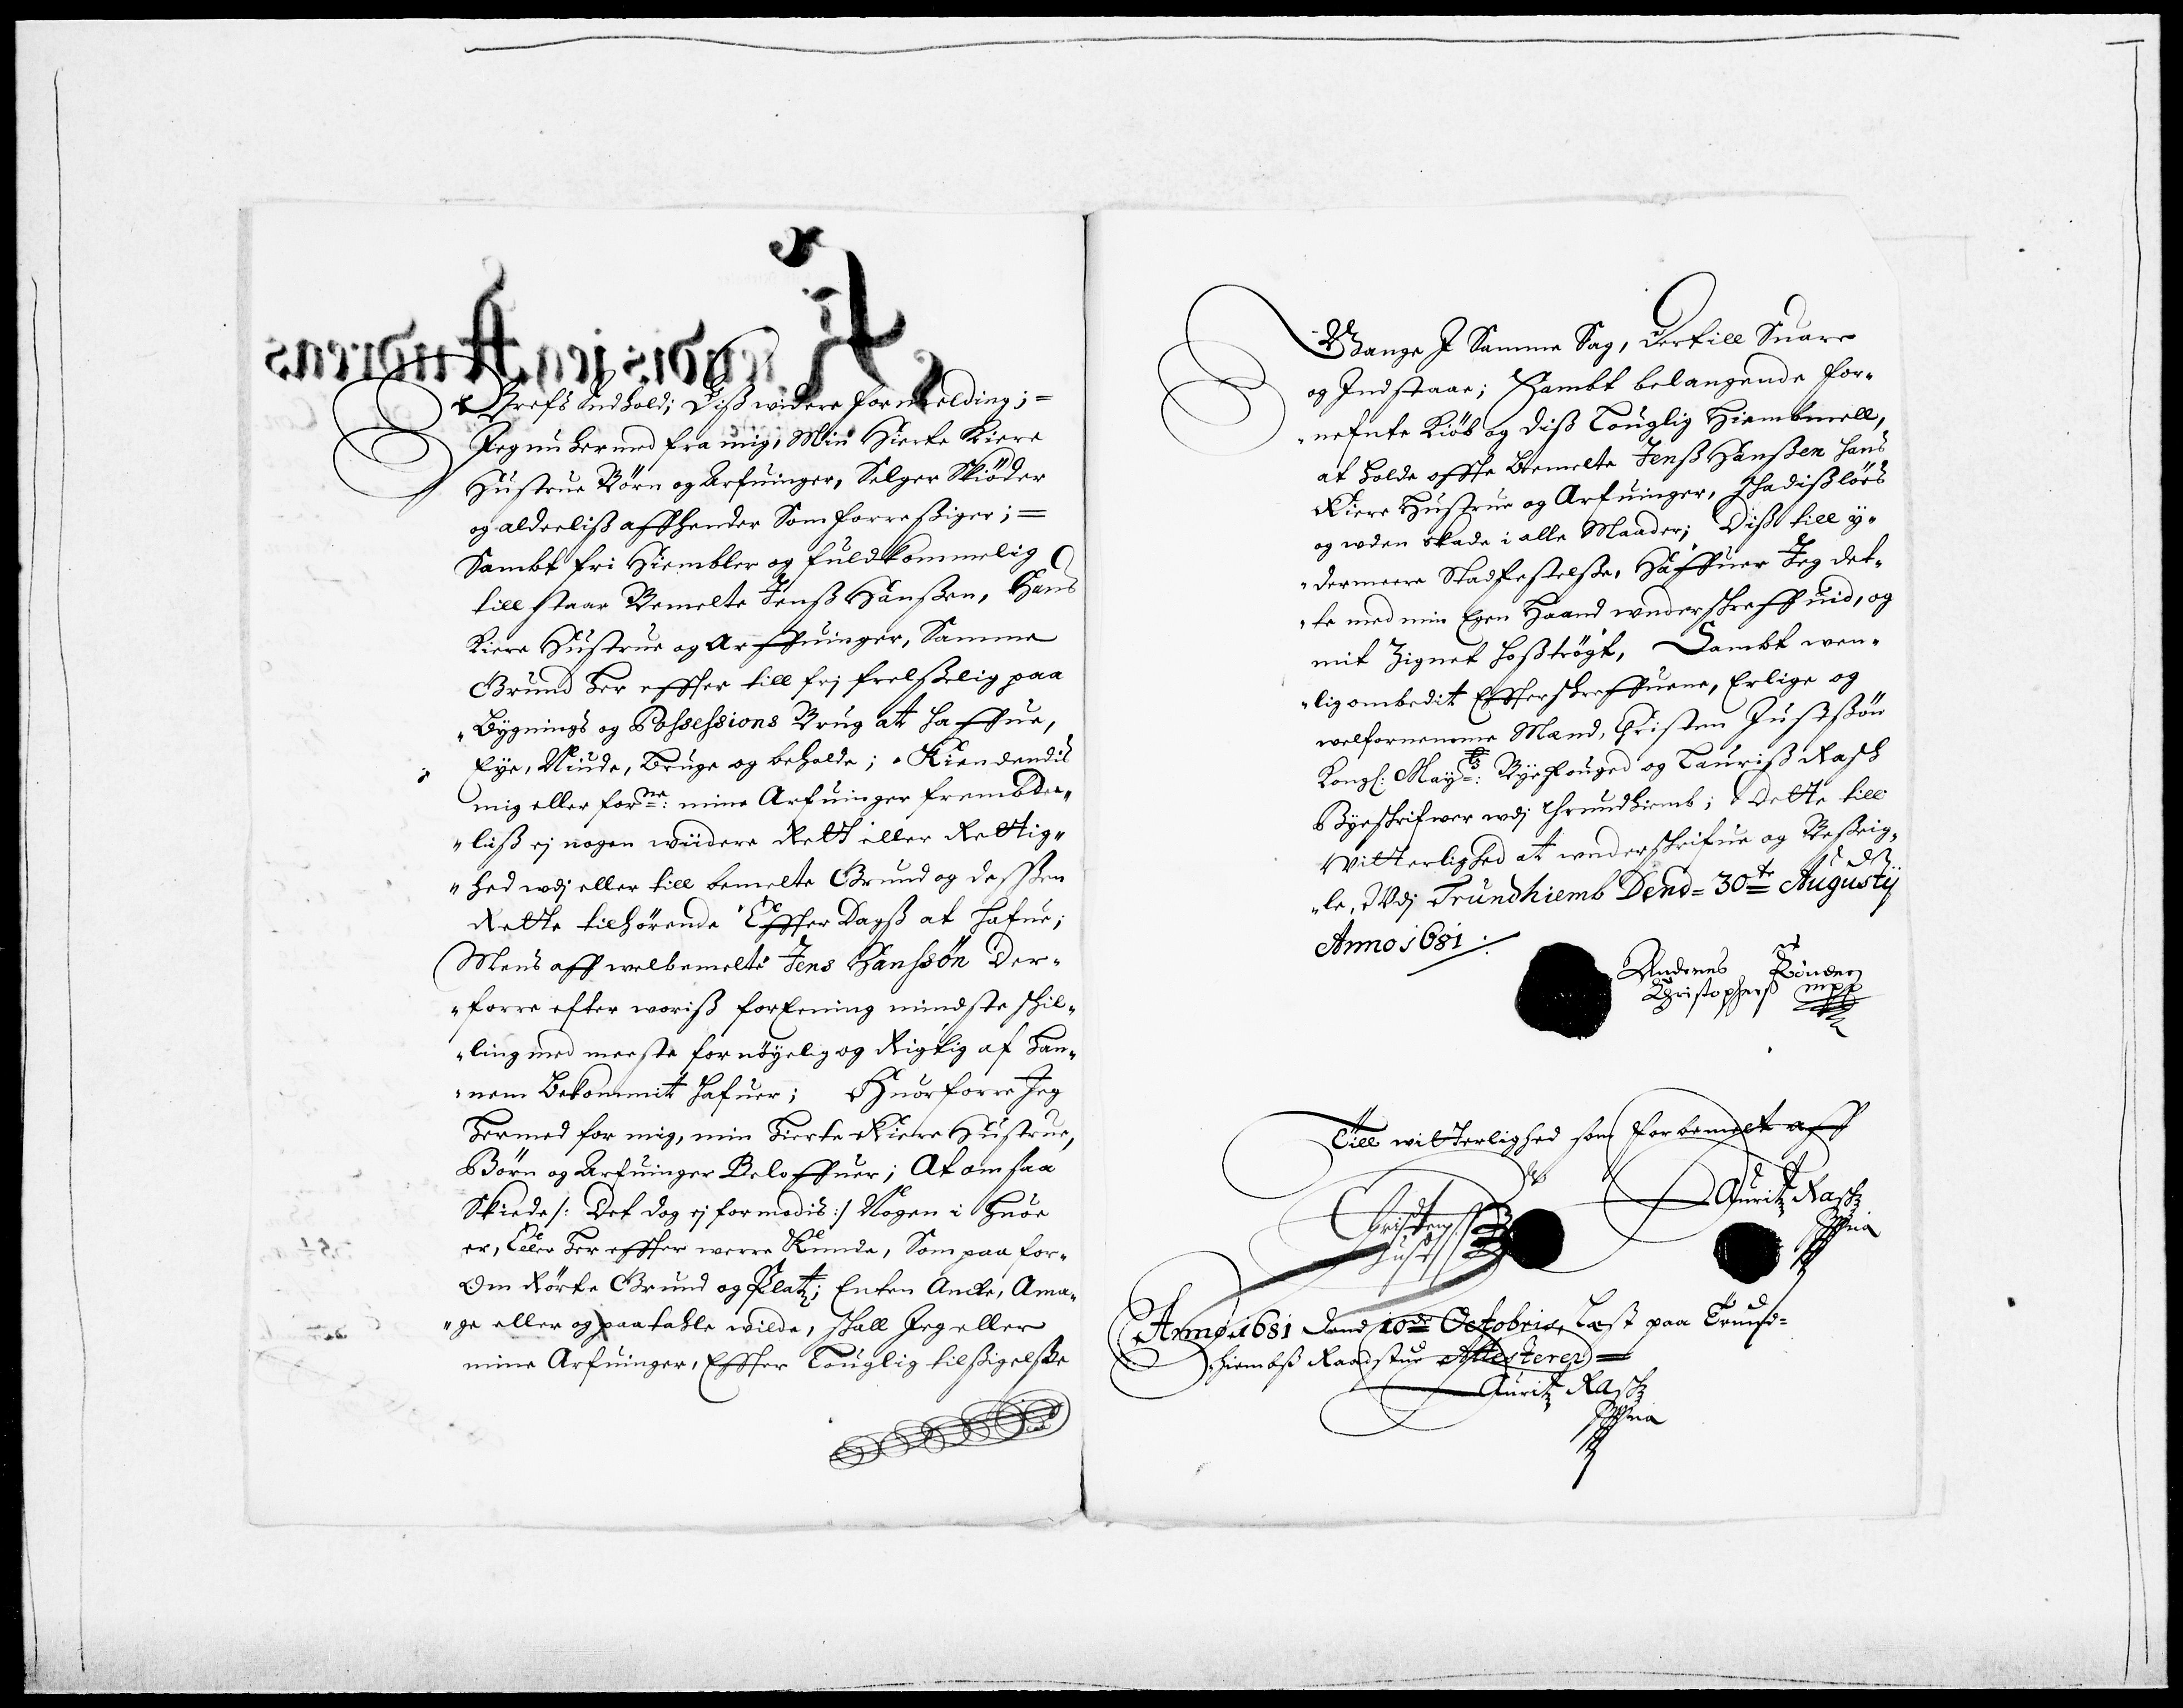 Brefs Indhold; Diß widere formelding; =
Jeg nu hermed fra mig, Min Hierte Kiere
Hustrue Börn og Arfuinger, Selger Skiöder
og alderliß affhender Som forreßiger; =
Sambt fri Hiembler og fuldkommelig
till staar Bemelte Jenß Hanßen, Hans
Kiere Hustrue og Arffuinger, Samme
Grund her effter till frj frelßelig paa
„Bygnings og Possessions Brug at haffue,
Eye, Niude, Bruge og beholde; Kiendendis
mig eller forne: mine Arfuinger frembde„
„liß ej nogen widere Rett eller Rettig„
„hed wdj eller till bemelte Grund og desßen
Rette tilhörende Effter Dagß at hafue;
Mens aff welbemelte Jens Hanssön Der„
„forre efter woriß forEening mindste skil„
„ling med meeste fornöyelig og Rigtig af Han„
„nem Bekommit hafuer; Huorforre Jeg
hermed for mig, min hierte Kiere Hustrue,
Börn og Arfuinger Beloffuer; At om saa
Skiede /: Det dog ej formodis :/ Nogen i huor
er, Eller her effter werre Kunde, Som paa for„
Om Rörte Grund og Platz; Enten Ancke, Ama„
„ge eller og paatahle wilde, skall Jeg eller
mine Arfuinger, Effter Louglig tilßigelße
Wange I Samme Sag, Dertill Suare
og Indstaae; Sambt belangende for„
„nefnte Kiöb og diß Louglig Hiembmell,
at holde offte Bemelte Jenß Hanßen hans
Kiere Hustrue og Arfuinger, Skadißlöes
og wden skade i alle Maader; Diß till y„
„dermeere Stadfestelße, Haffuer Jeg det„
„te med min Egen Haand wnderskreffuid, og
mit Zignet hoßtrögt, Sambt wen„
„lig ombedit Effterskreffuene, Erlige og
welfornemme Mænd, Christen Justßön
Kongl: Mayts: Byefouged og Lauriß Rasch
Byeskrifwer wdj Thrundhiemb; Dette till
Witterlighed at wnderskrifue og Beßeig„
„le, Wdj Trundhiemb Dend = 30te Augustij
Anno 1681 ./.
Anderes Rönder
Christophers mpp
Till witterlighed som forbemelt aff
Christen
Just
Lauritz Rasch
Mpria
Anno 1681 dend 10de Octobris, Læst paa Trund=
„hiembß Raadstue Attesterer =
Lauritz Rasch
Mpria